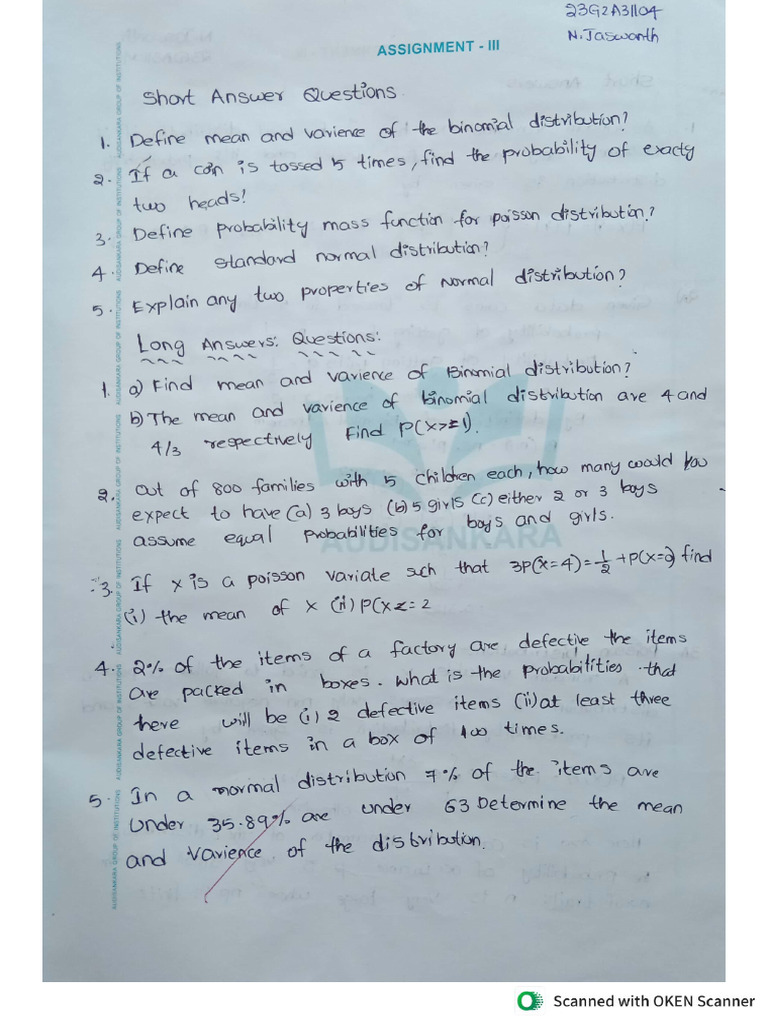 23G2A31104
N.Jaswanth
ASSIGNMENT - III
Short Answer Questions
1. Define mean and varience of the binomial distribution?
2. If a coin is tossed 5 times, find the probability of exacty
two heads?
3. Define probability mass function for poisson distribution?
4. Define standard normal distribution?
5. Explain any two properties of Normal distribution?
Long Answers: Questions:
1. a) Find mean and varience of Binomial distribution?
b) The mean and varience of binomial distribution are 4 and
4/3 respectively Find P(X>=1).
2. out of 800 families with 5 children each, how many would you
expect to have (a) 3 boys (b) 5 girls (c) either 2 or 3 boys
assume equal probabilities for boys and girls.
AUDISANKARA
3. If x is a poisson variate sch that 3P(x=4)=1/2+P(x=0) find
(i) the mean of x (ii) P(x<=2
4. 2% of the items of a factory are defective the items
are packed in boxes. what is the probabitities that
there will be (i) 2 defective items (ii) at least three
defective items in a box of 100 times.
5. In a normal distribution 7% of the items are
under 35.89% are under 63 Determine the mean
and varience of the distribution.
AUDISANKARA GROUP OF INSTITUTIONS
Scanned with OKEN Scanner